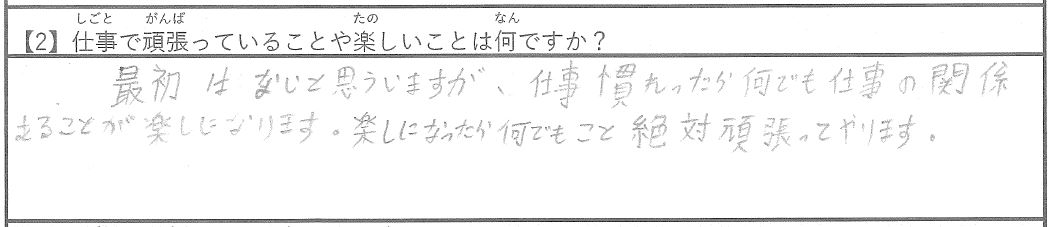 しごと がんば たの なん
【2】仕事で頑張っていることや楽しいことは何ですか？
最初は ないと思ういますが、仕事慣れったら何でも仕事の関係
することが楽しになります。楽しになったら何でもこと絶対頑張ってやります。